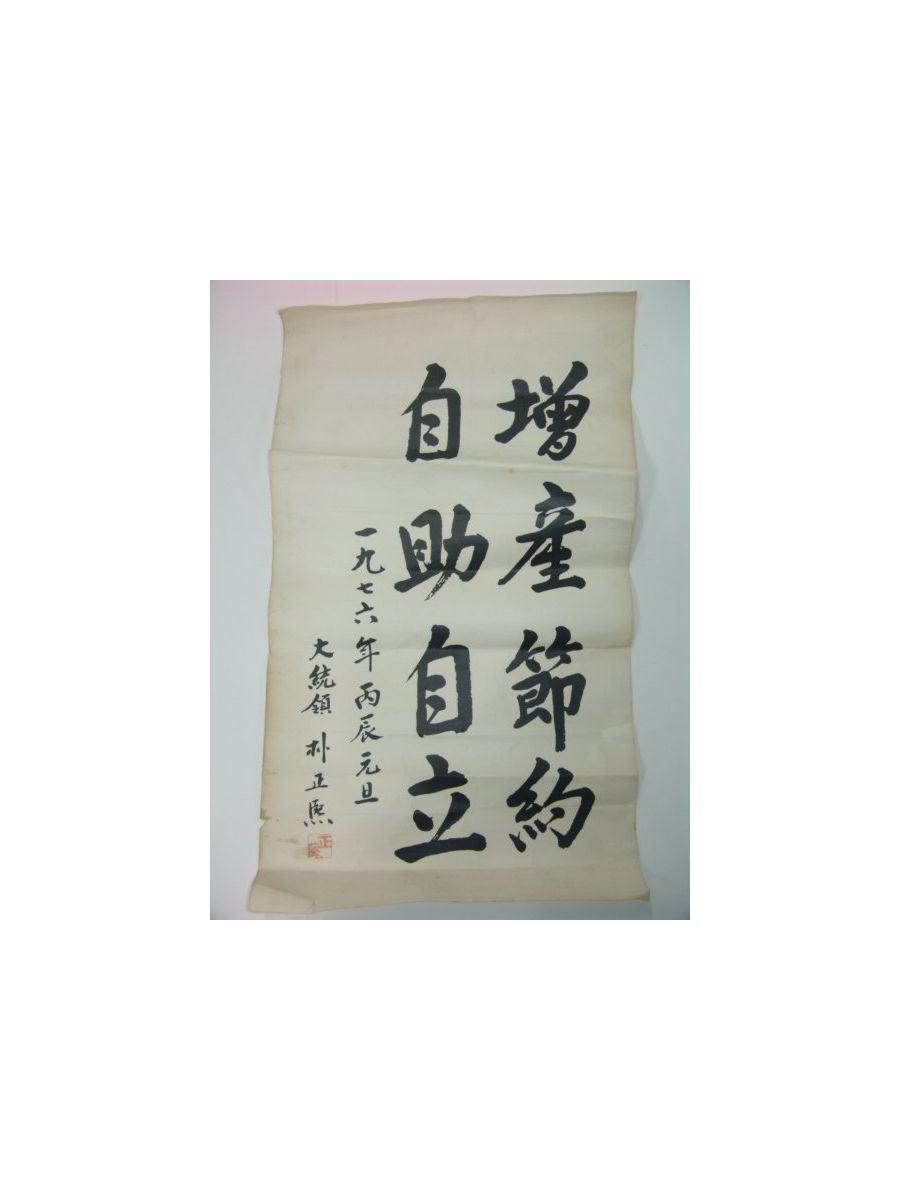 增産節約
自助自立
一九七六年 丙辰元旦
大統領 朴正熙
正熙